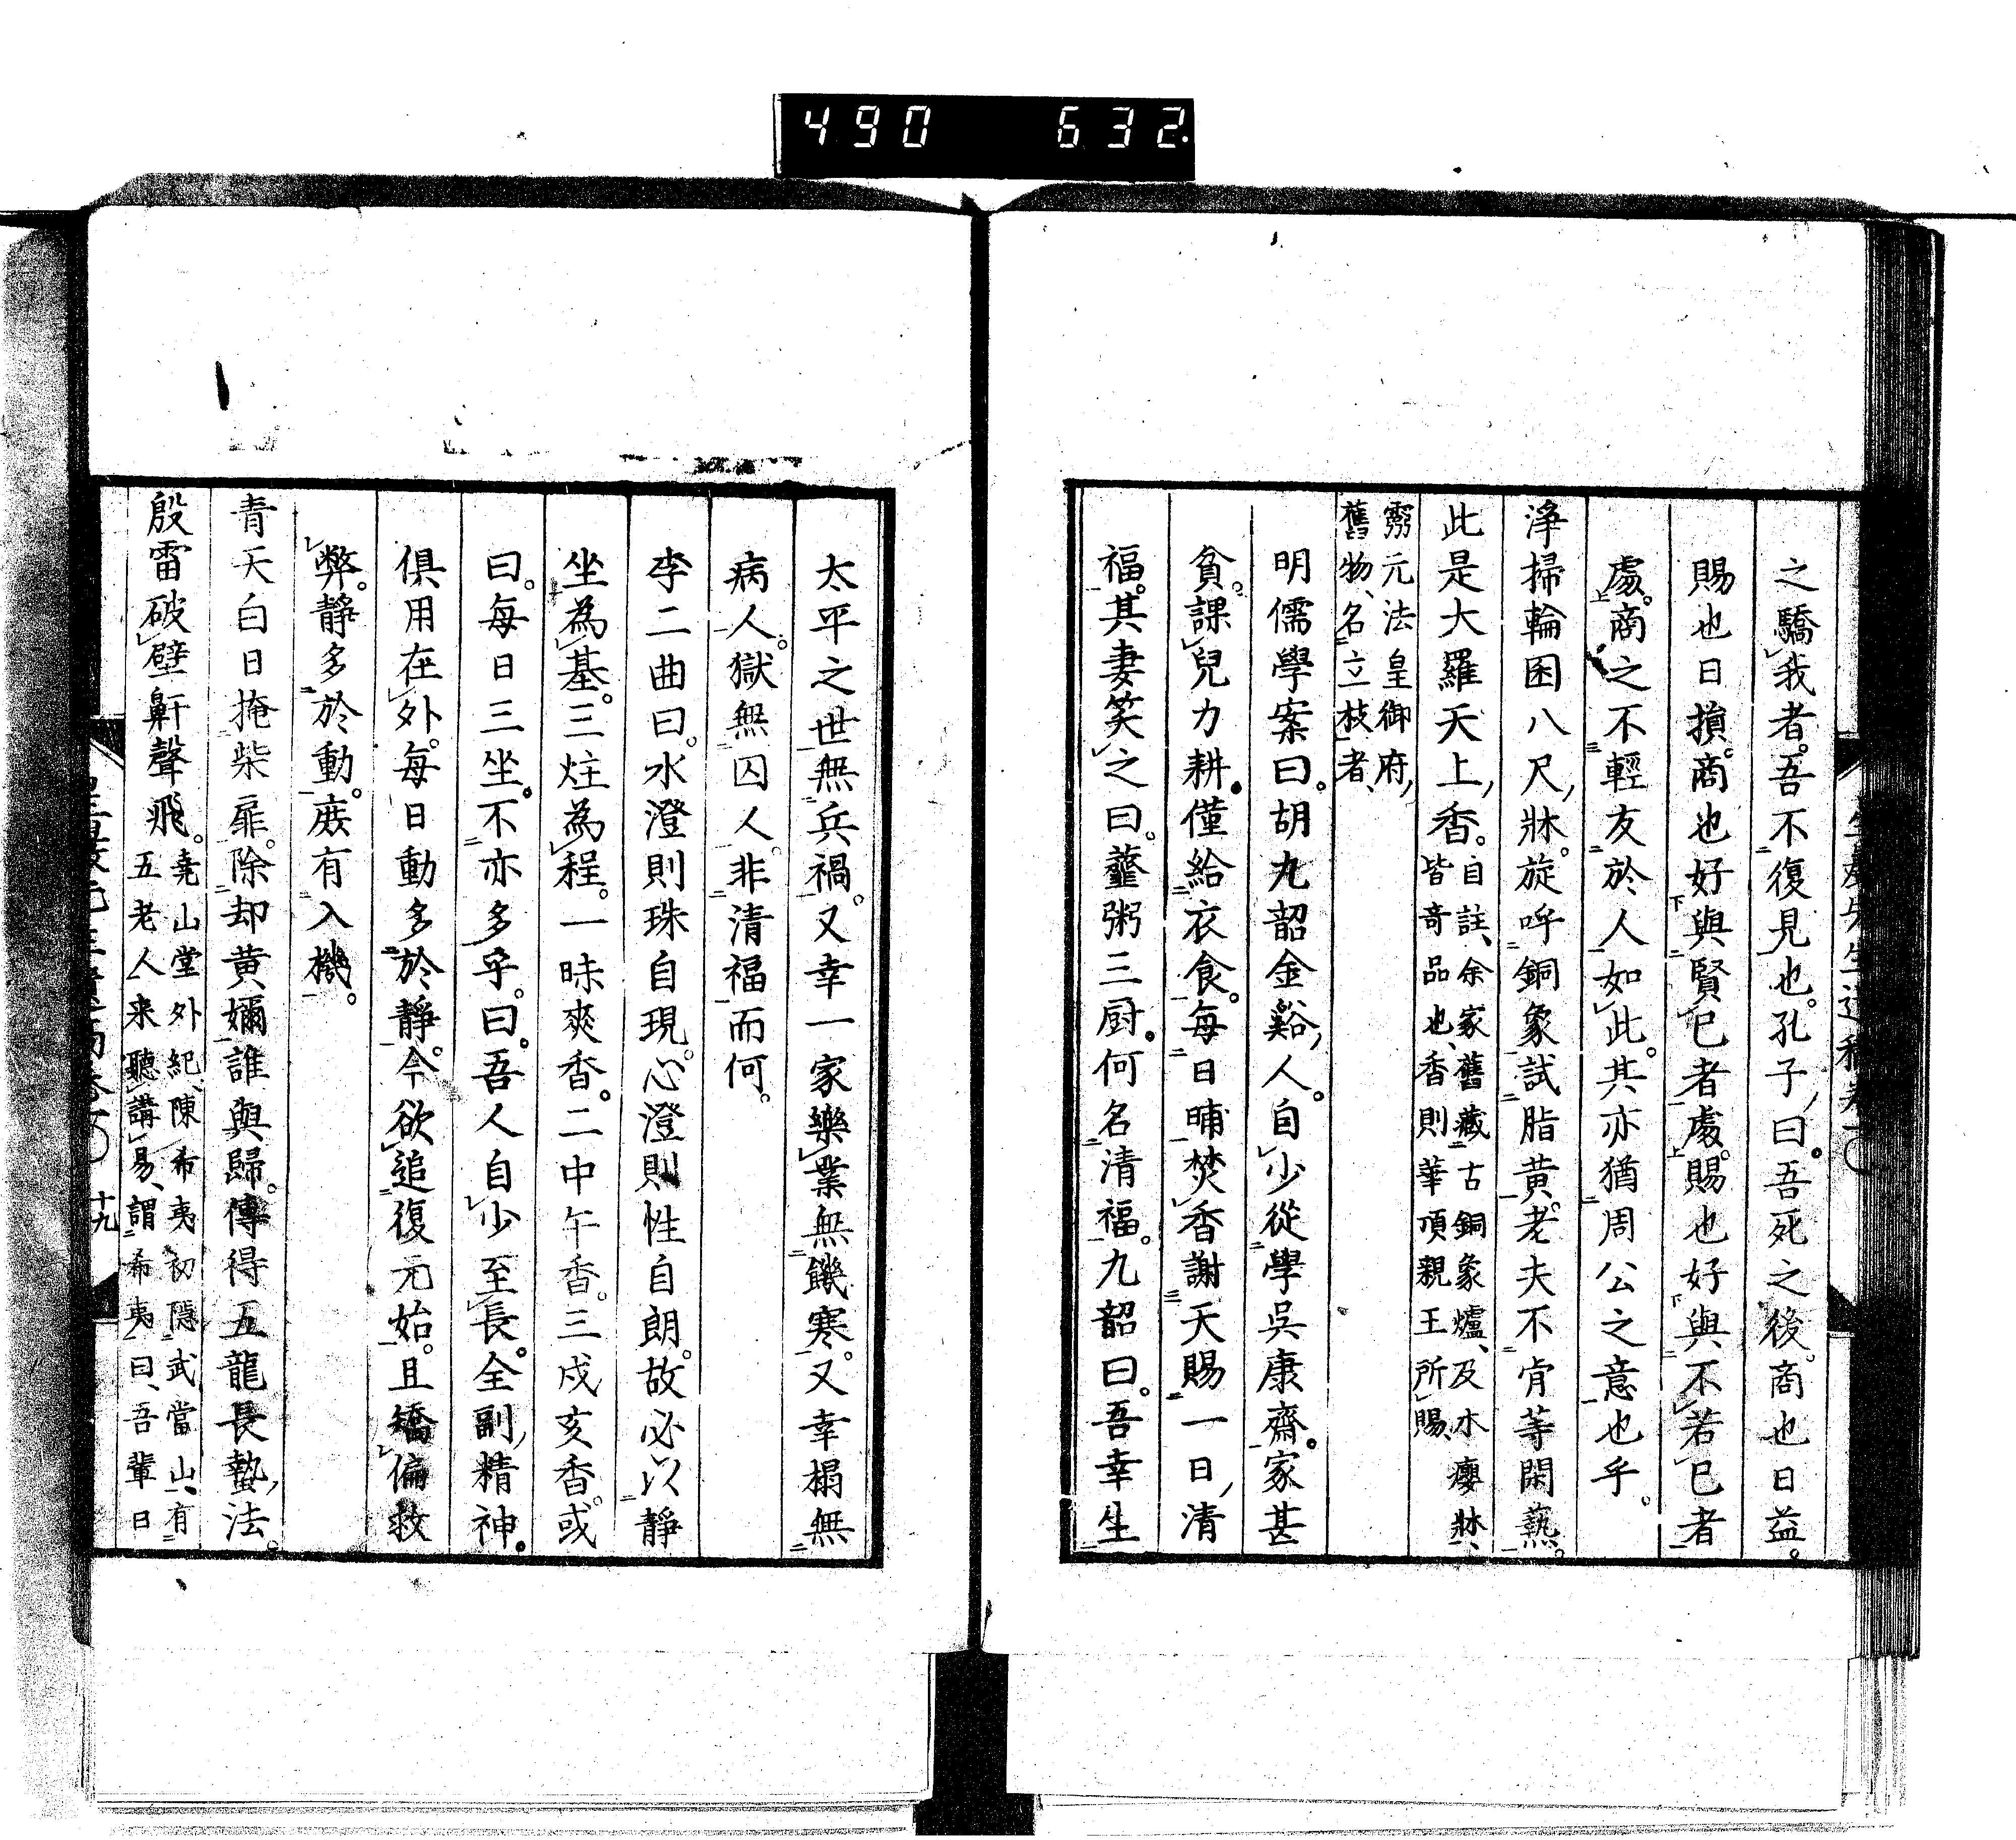 490 632
之驕我者。吾不復見也。孔子曰。吾死之後。商也日益。
賜也日損。商也好與賢已者處。賜也好與不若已者
處。商之不輕友於人如此。其亦猶周公之意也乎。
淨掃輪囷八尺牀。旋呼銅象試脂黄。老夫不肯等閑爇。
此是大羅天上香。自註、余家舊藏古銅象爐、及木癭牀、
皆奇品也、香則華頂親王所賜、
靈元法皇御府
舊物、名立枝者、
明儒學案曰。胡九韶金谿人。自少從學吳康齋。家甚
貧。課兒力耕。僅給衣食。每日晡焚香謝天賜一日清
福。其妻笑之曰。虀粥三厨。何名清福。九韶曰。吾幸生
太平之世無兵禍。又幸一家樂業無饑寒。又幸榻無
病人。獄無囚人。非清福而何。
李二曲曰。水澄則珠自現。心澄則性自朗。故必以靜
坐為基。三炷為程。一昧爽香。二中午香。三戌亥香。或
曰。每日三坐。不亦多乎。曰。吾人自少至長。全副精神。
俱用在外。每日動多於靜。今欲追復元始。且矯偏救
弊。靜多於動。庶有入機。
青天白日掩柴扉。除却黄嬭誰與歸。傳得五龍長蟄法。
殷雷破壁鼾聲飛。堯山堂外紀、陳希夷初隱武當山、有
五老人来聽講易、謂希夷曰、吾輩日
十九